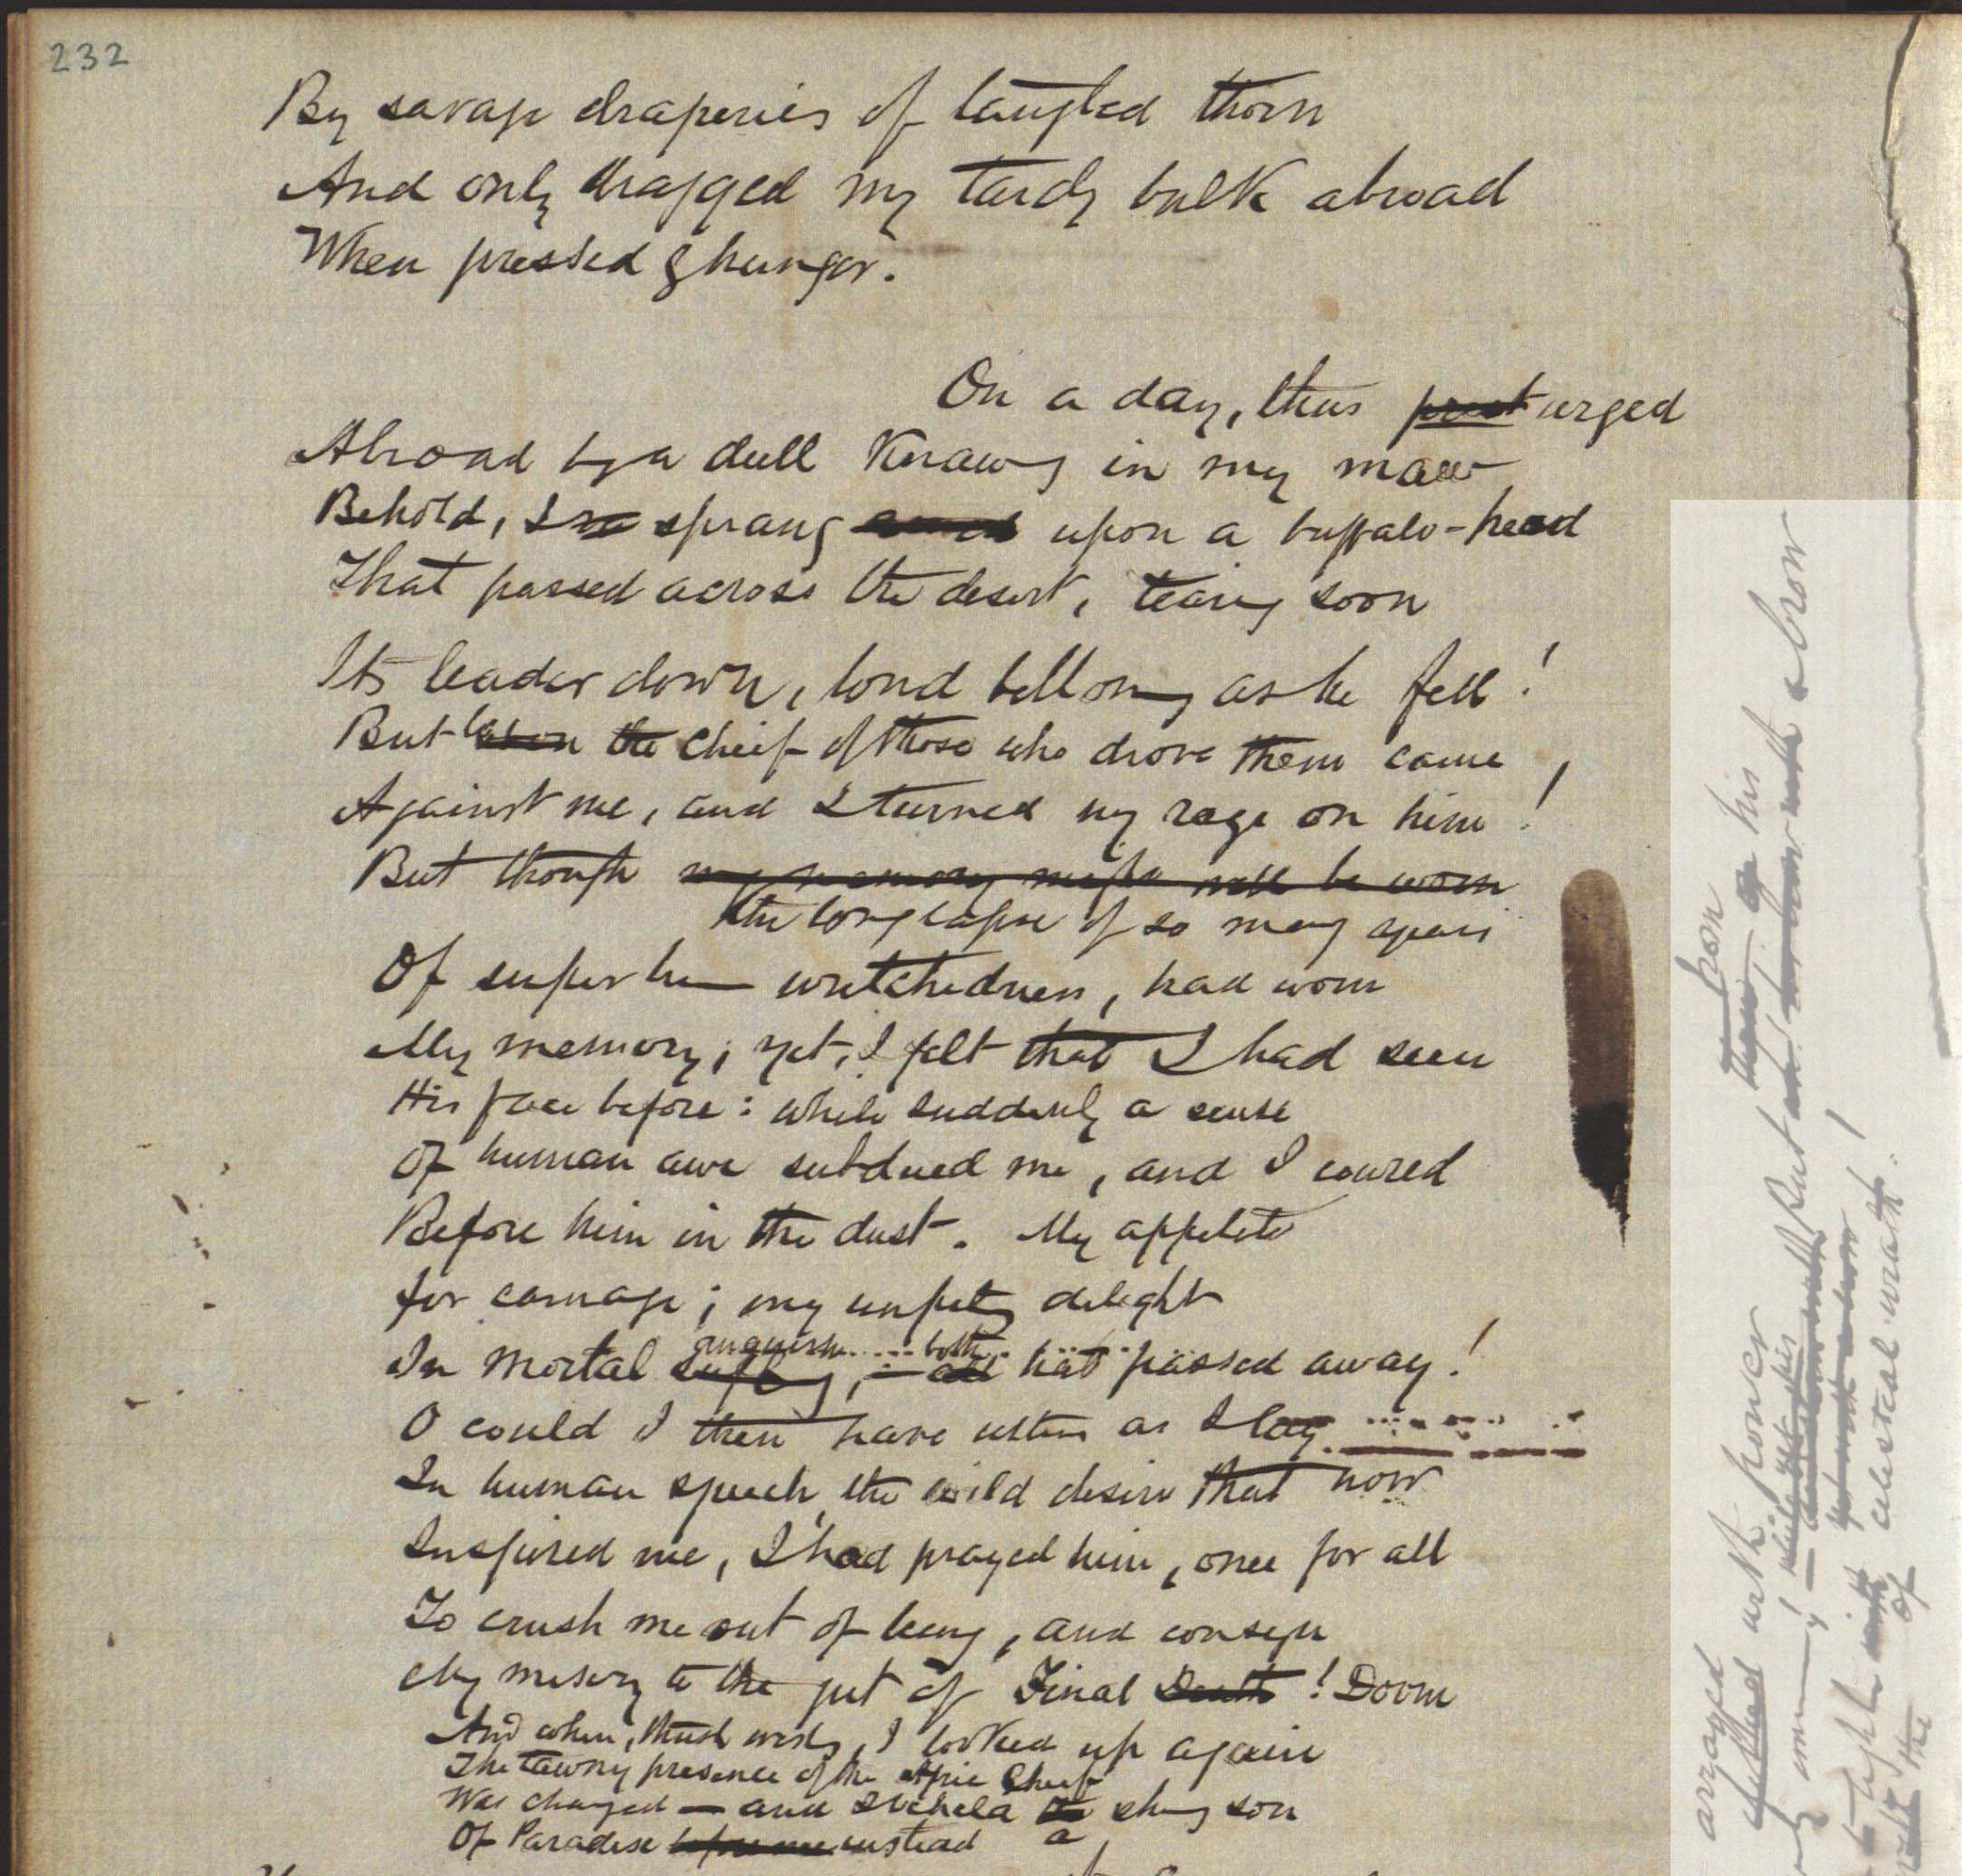 232
By savage draperies of tangled thorn
And only dragged my tardy bulk abroad
When pressed by hunger.
On a day, thus prest urged
Abroad by a dull Knawing in my maw
Behold, I sprang upon a buffalo-head
That passed across the desert, tearing soon
Its leader down, loud bellowing as he fell!
But the Cheif of those who drove them came,
Against me, and I turned my rage on him!
But though my memory might well be worn
the long lapse of so many years
Of superhuman wretchedness, had worn
My memory; yet, I felt that I had seen
His face before: while suddenly a sense
Of human awe subdued me, and I cowered
Before him in the dust. My appetite
for carnage; my unpitying delight
anguish both
In mortal suffering, — all had passed away!
O could I then have uttered as I lay
In human speech the wild desire that now
Inspired me, I had prayed him, once for all
To crush me out of being, and consign
My misery to the pit of Final Death! Doom
And when, thus wishing, I looked up again
The tawny presence of the Afric Cheif
Was changed — and I beheld the shining son
a
Of Paradise before me instead
his
upon
But brow
arrayed with power
celestial wrath.
of
the